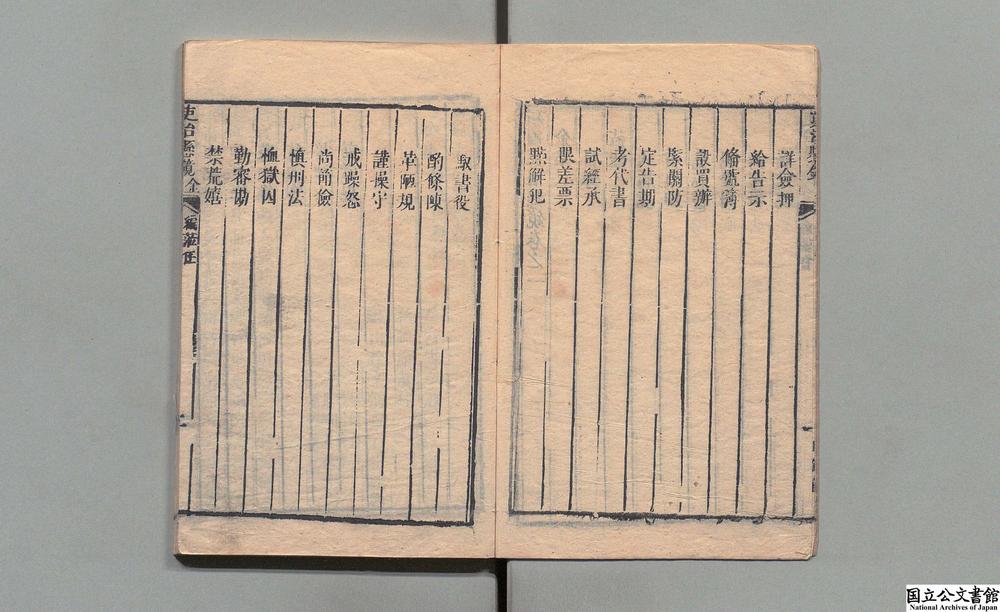 詳僉押
給告示
備號簿
設買辦
緊關防
定告期
考代書
試經承
限差票
點解犯
馭書役
酌條陳
革陋規
謹操守
戒躁怒
尚節儉
慎刑法
恤獄囚
勤審勘
禁荒嬉
吏治懸鏡全
編蒞任
国立公文書館
National Archives of Japan